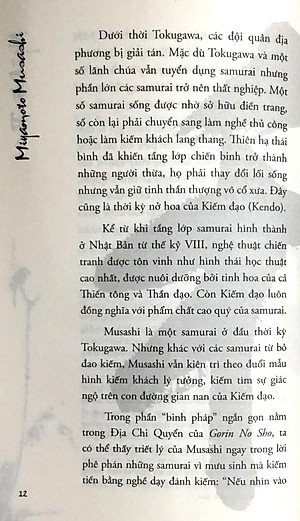 Miyamoto Musashi
Dưới thời Tokugawa, các đội quân địa
phương bị giải tán. Mặc dù Tokugawa và một
số lãnh chúa vẫn tuyển dụng samurai nhưng
phần lớn các samurai trở nên thất nghiệp. Một
số samurai sống được nhờ sở hữu điền trang,
số còn lại phải chuyển sang làm nghề thủ công
hoặc làm kiếm khách lang thang. Thiên hạ thái
bình đã khiến tầng lớp chiến binh trở thành
những người thừa, họ phải thay đổi lối sống
nhưng vẫn giữ tinh thần thượng võ cổ xưa. Đây
cũng là thời kỳ nở hoa của Kiếm đạo (Kendo).
Kể từ khi tầng lớp samurai hình thành
ở Nhật Bản từ thế kỷ VIII, nghệ thuật chiến
tranh được tôn vinh như hình thái học thuật
cao nhất, được nuôi dưỡng bởi tinh hoa của cả
Thiền tông và Thần đạo. Còn Kiếm đạo luôn
đồng nghĩa với phẩm chất cao quý của samurai.
Musashi là một samurai ở đầu thời kỳ
Tokugawa. Nhưng khác với các samurai từ bỏ
đao kiếm, Musashi vẫn kiên trì theo đuổi mẫu
hình kiếm khách lý tưởng, kiếm tìm sự giác
ngộ trên con đường gian nan của Kiếm đạo.
Trong phần “binh pháp” ngắn gọn nằm
trong Địa Chi Quyển của Gorin No Sho, ta
có thể thấy triết lý của Musashi ngay trong lời
phê phán những samurai vì mưu sinh mà kiếm
tiền bằng nghề dạy đánh kiếm: “Nếu nhìn vào
12